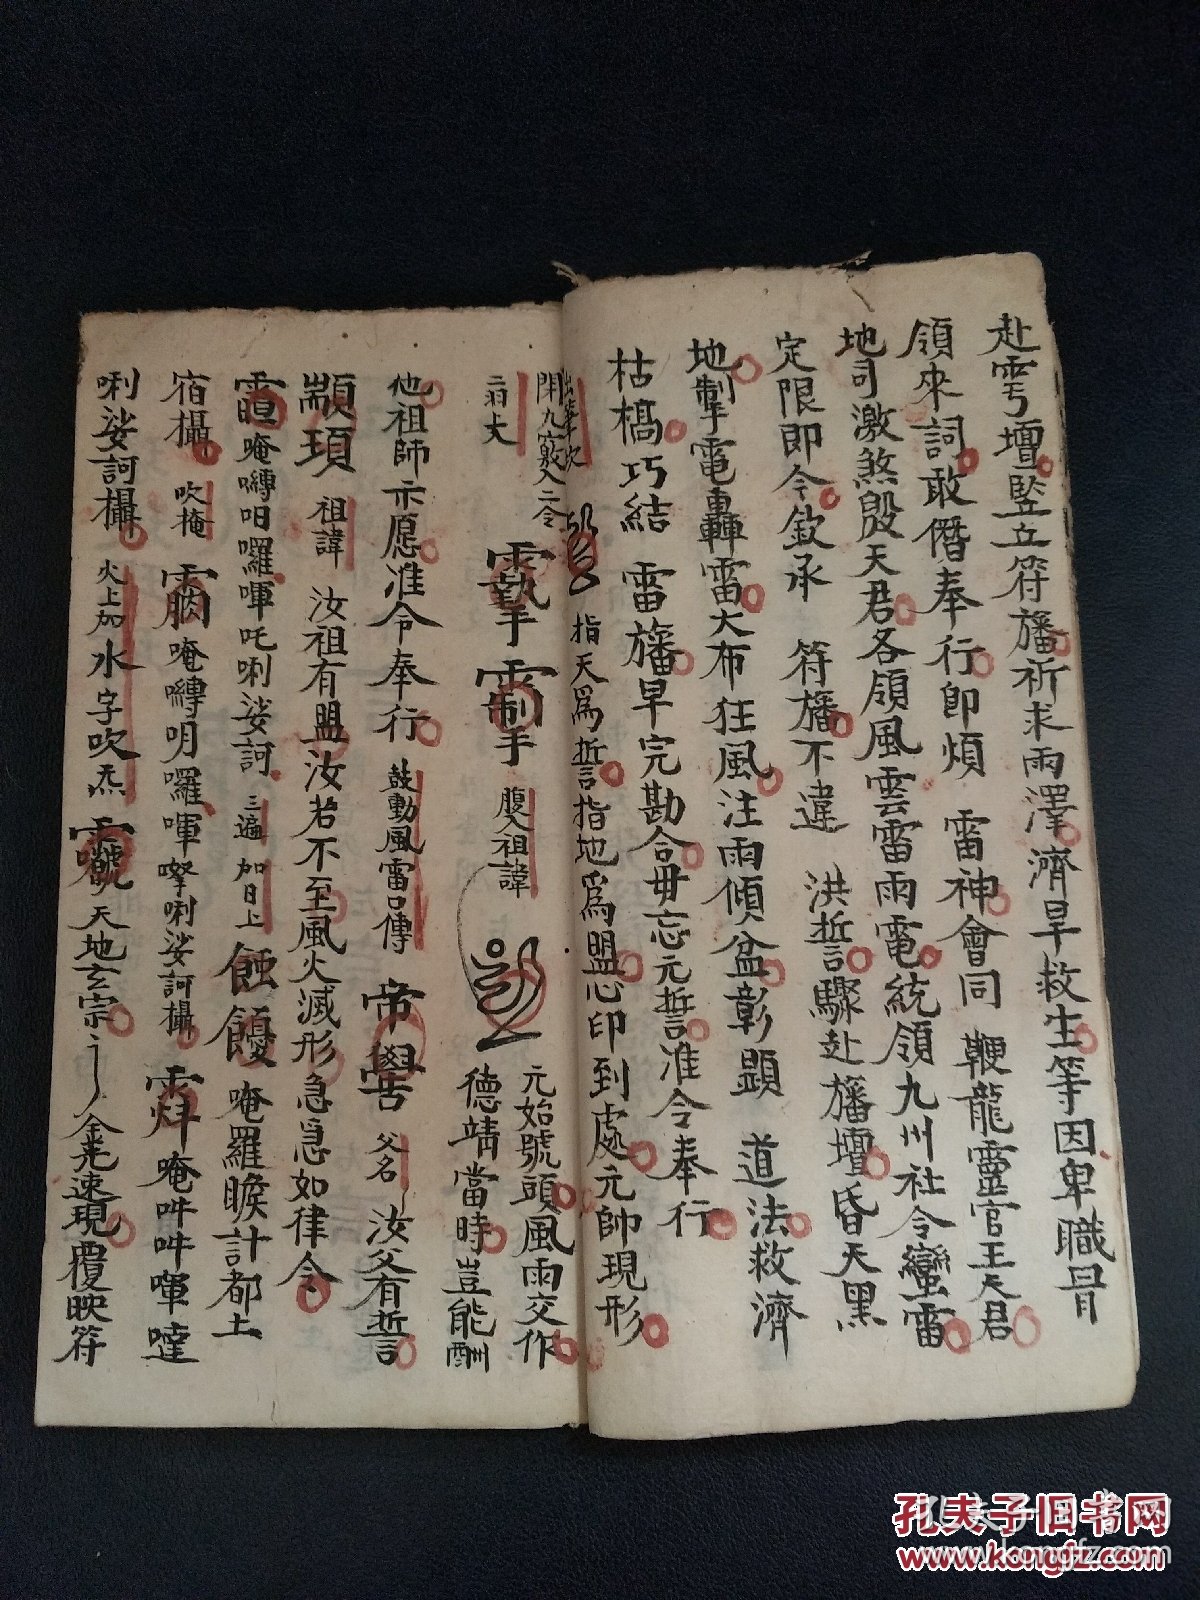 赴雩壇豎立符旛祈求雨澤濟旱救生等因卑職冒
領來詞敢僭奉行即煩 雷神會同 鞭龍靈官王天君
地司激煞殷天君各領風雲雷雨電統領九州社令蠻雷
定限即今欽承 符旛不違 洪誓驟赴旛壇昏天黑
地掣電轟雷大布狂風注雨傾盆彰顯 道法救濟
枯槁巧結 雷旛早完勘合毋忘元誓准令奉行
指天為誓指地為盟心印到處元帥現形
閉九竅
腹入祖諱
元始號頭風雨交作
德靖當時豈能酬
他祖師示愿准令奉行 鼓動風雷口傳 帝嚳 父名 汝父有誓
顓頊 祖諱 汝祖有盟汝若不至風火滅形急急如律令
唵囀咱囉㖔吒唎娑訶 三遍 加日上 唵羅睺計都土
宿攝 吹掩 唵囀明囉㖔唎娑訶攝 唵吽吽㖔噠
唎娑訶攝 火上加水字吹炁 天地玄宗 金光速現覆映符
孔夫子旧书网
www.kongfz.com